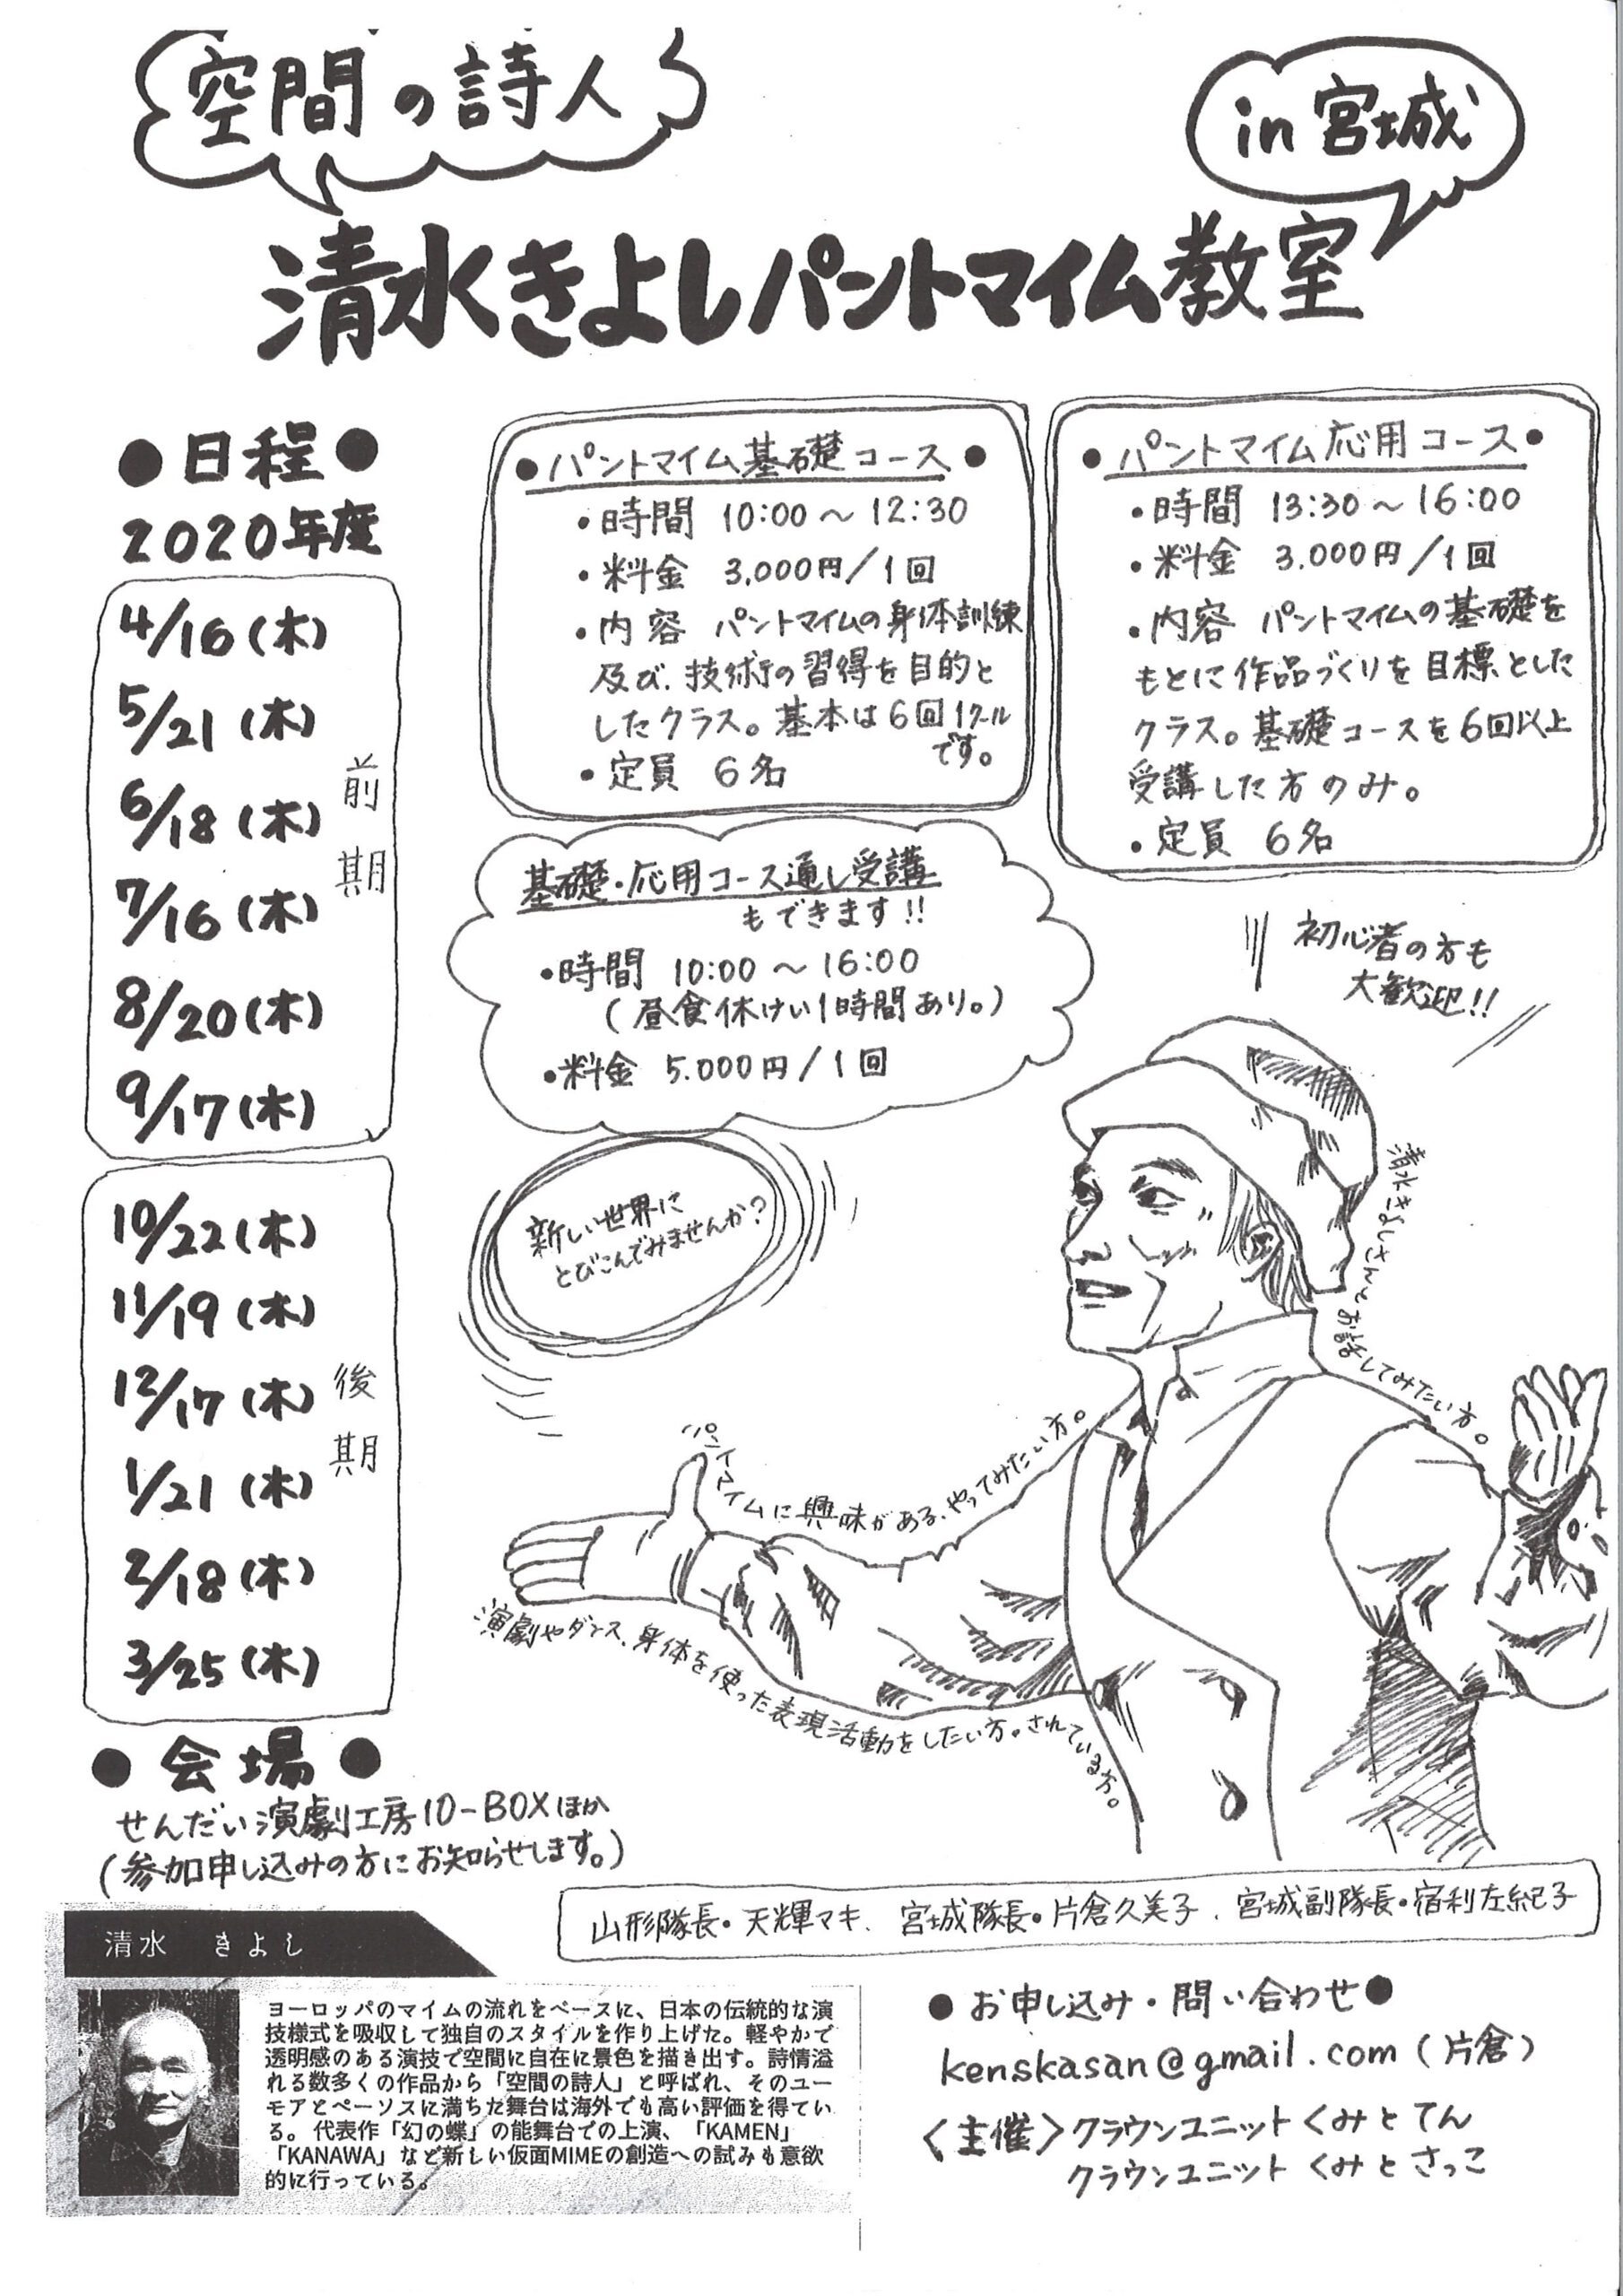 空間の詩人
in 宮城
清水きよしパントマイム教室
●日程●
2020年度
4/16(木)
5/21(木)
6/18(木)
7/16(木)
8/20(木)
9/17(木)
前期
10/22(木)
11/19(木)
12/17(木)
1/21(木)
2/18(木)
3/25(木)
後期
●会場●
せんだい演劇工房10-BOXほか
(参加申し込みの方にお知らせします。)
●パントマイム基礎コース●
・時間 10:00〜12:30
・料金 3,000円/1回
・内容 パントマイムの身体訓練
及び、技術の習得を目的と
したクラス。基本は6回1クール
です。
・定員 6名
●パントマイム応用コース●
・時間 13:30〜16:00
・料金 3,000円/1回
・内容 パントマイムの基礎を
もとに作品づくりを目標とした
クラス。基礎コースを6回以上
受講した方のみ。
・定員 6名
基礎・応用コース通し受講
もできます!!
・時間 10:00〜16:00
(昼食休けい1時間あり。)
・料金 5.000円/1回
初心者の方も
大歓迎!!
新しい世界に
とびこんでみませんか?
清水きよしさんとお話してみたい方。
パントマイムに興味がある、やってみたい方。
演劇やダンス、身体を使った表現活動をしたい方。されている方。
山形隊長・天輝マキ、宮城隊長・片倉久美子、宮城副隊長・宿利左紀子
清水 きよし
ヨーロッパのマイムの流れをベースに、日本の伝統的な演
技様式を吸収して独自のスタイルを作り上げた。軽やかで
透明感のある演技で空間に自在に景色を描き出す。詩情溢
れる数多くの作品から「空間の詩人」と呼ばれ、そのユー
モアとペーソスに満ちた舞台は海外でも高い評価を得てい
る。代表作「幻の蝶」の能舞台での上演、「KAMEN」
「KANAWA」など新しい仮面MIMEの創造への試みも意欲
的に行っている。
●お申し込み・問い合わせ●
kenskasan@gmail.com(片倉)
〈主催〉クラウンユニット くみとてん
クラウンユニット くみとさっこ